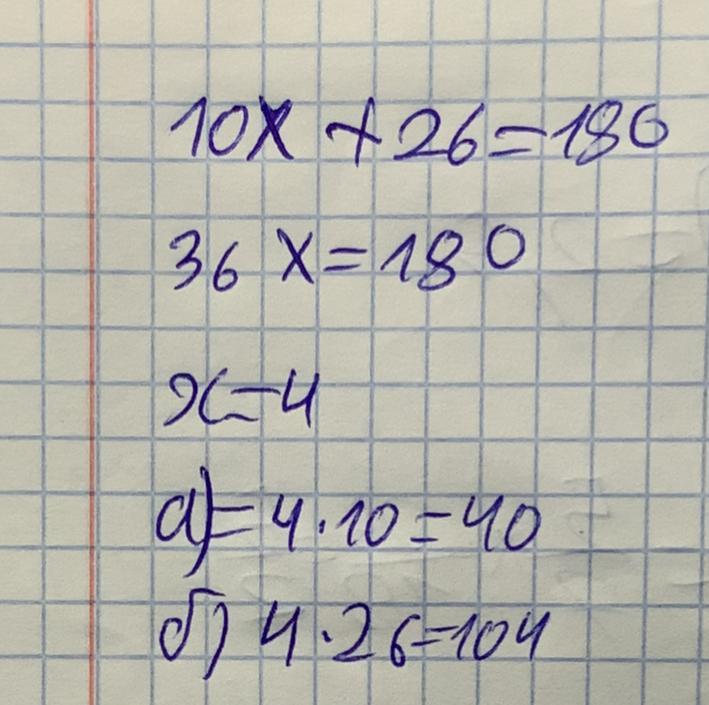 10x + 26 = 180
36 x = 180
x = 4
а) = 4 · 10 = 40
б) 4 · 26 = 104